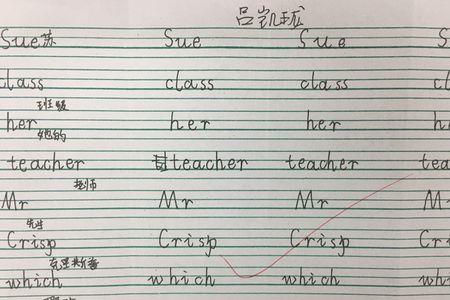 吕凯珑
Sue苏 Sue Sue S
class class class cla
班级
her her her h
她的
teacher teacher teacher tea
老师
Mr Mr Mr Mr
先生
Crisp Crisp Crisp Cri
克里斯普
which which which wh